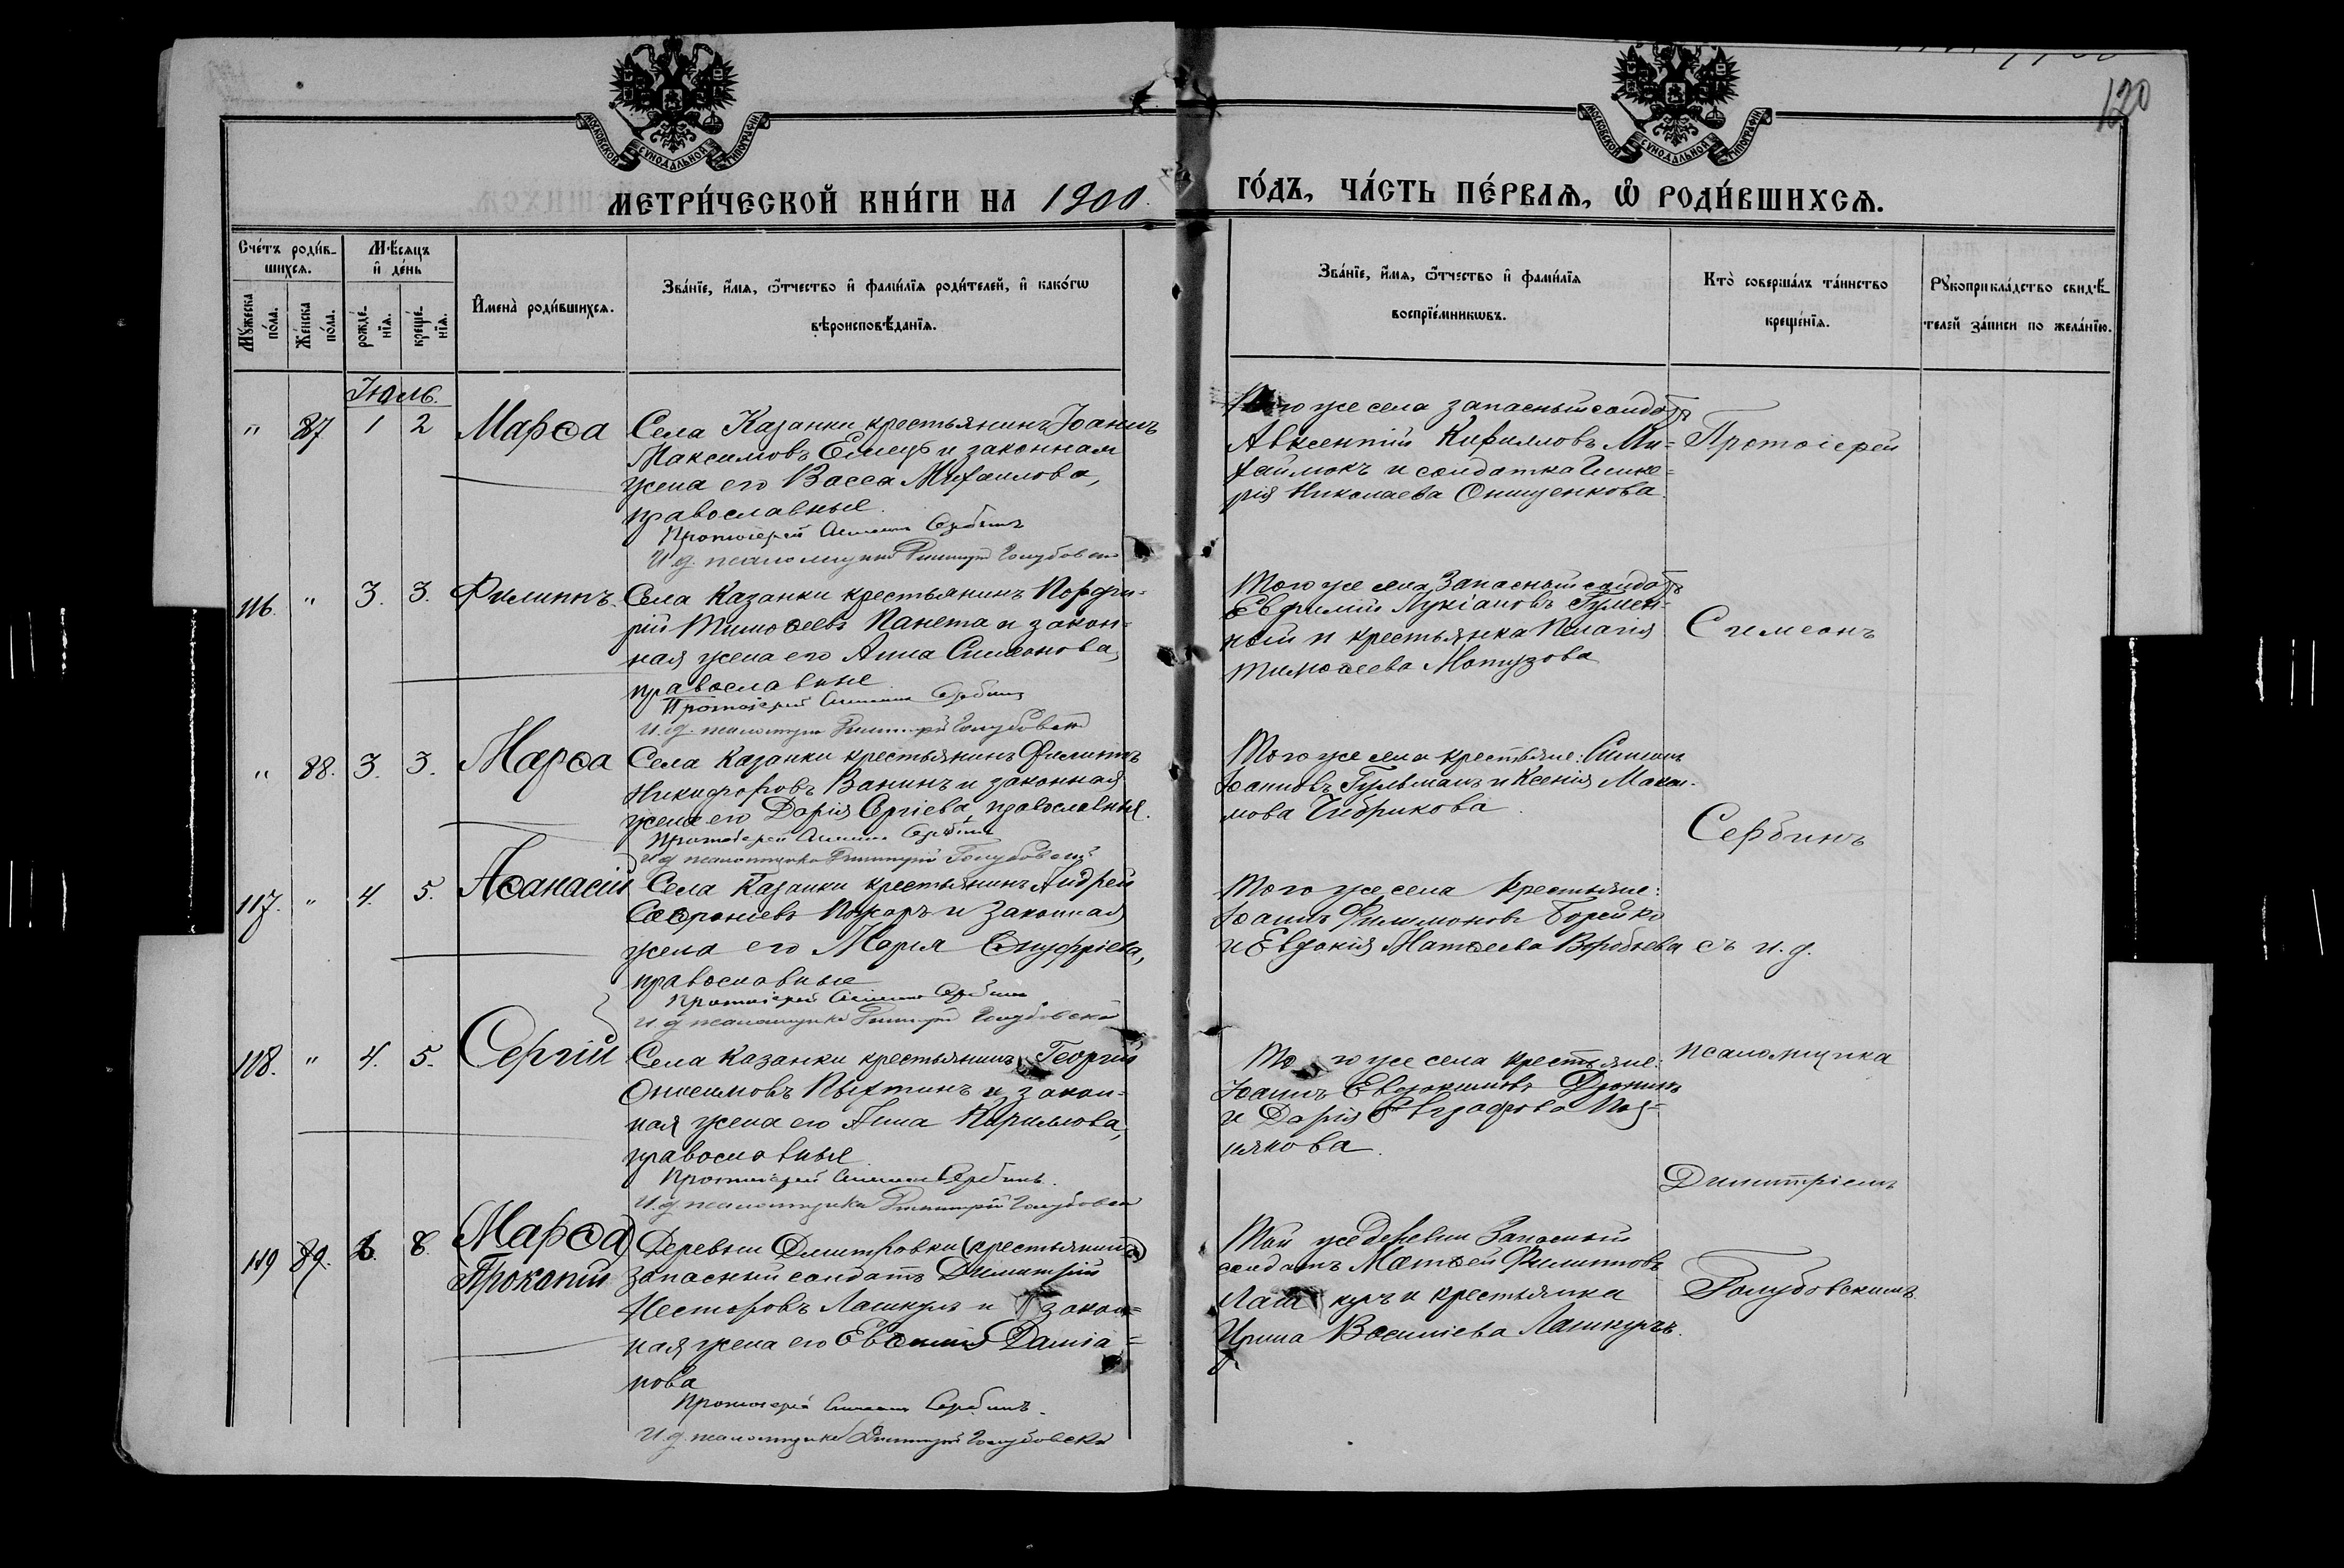 120
МОСКОВСКОЙ СѴНОДАЛЬНОЙ ТИПОГРАФІИ
МОСКОВСКОЙ СѴНОДАЛЬНОЙ ТИПОГРАФІИ
МЕТРИ́ЧЕСКОЙ КНИ́ГИ НА 1900
ГО́ДЪ, ЧА́СТЬ ПЕ́РВАѦ, Ѡ РОДИ́ВШИХСѦ.
Сче́тъ роди́в-
шихсѧ.
Мꙋ́жеска
по́ла.
Же́нска
по́ла.
Мѣ́сѧцъ
и҆ де́нь
рожде́-
нїѧ.
креще́-
нїѧ.
И҆мена̀ роди́вшихсѧ.
Зва́нїе, и҆́мѧ, ѻ҆́тчество и҆ фами́лїѧ роди́телей, и҆ како́гѡ
вѣроисповѣ́данїѧ.
Зва́нїе, и҆́мѧ, ѻ҆́тчество и҆ фами́лїѧ
воспрїе́мникѡвъ.
Кто̀ соверша́лъ та́инство
креще́нїѧ.
Рꙋкоприкла́дство свидѣ́-
телей за́писи по жела́нїю.
Іюль.
" 87 1 2 Марѳа
Села Казанки крестьянинъ Іоаннъ
Максимовъ Емецъ и законная
жена его Васса Михаилова,
православные.
Протоіерей Симеонъ Сербинъ
И. д. псаломщика Димитрій Голубовскій
Того же села запасный солдатъ
Авксентій Кирилловъ Ми-
хайлюкъ и солдатка Глике-
рія Николаева Онищенкова.
116. " 3. 3. Филиппъ.
Села Казанки крестьянинъ Порфи-
рій Тимоѳеевъ Панета и закон-
ная жена его Анна Симеонова,
православные
Протоіерей Симеонъ Сербинъ
И. д. псаломщика Димитрій Голубовскій
Того же села Запасный солдатъ
Евфимій Лукіановъ Гумен-
ный и крестьянка Пелагія
Тимоѳеева Мотузова
" 88. 3. 3. Марѳа
Села Казанки крестьянинъ Филиппъ
Никифоровъ Ванинъ и законная
жена его Дарія Сергіева православные.
Протоіерей Симеонъ Сербинъ
И. д. псаломщика Димитрій Голубовскій
Того же села крестьяне: Симеонъ
Іоанновъ Гульманъ и Ксенія Макси-
мова Чибрикова.
117. " 4. 5. Аѳанасій
Села Казанки крестьянинъ Андрей
Софроніевъ Пожаръ и законная
жена его Марія Онуфріева,
православные
Протоіерей Симеонъ Сербинъ
И. д. псаломщика Димитрій Голубовскій
Того же села крестьяне:
Іоаннъ Филимоновъ Борейко
и Евдокія Матѳеева Воробьева
118. " 4. 5. Сергій
Села Казанки крестьянинъ Георгій
Онисимовъ Пыхтинъ и закон-
ная жена его Анна Кириллова,
православные
Протоіерей Симеонъ Сербинъ.
И. д. псаломщика Димитрій Голубовскій
Того же села крестьяне:
Іоаннъ Евдокимовъ Дронинъ
и Дарія Евграфова Поз-
някова.
119 89. 6. 8. Марѳа
Прокопій
Деревни Дмитровки (крестьянинъ)
запасный солдатъ Димитрій
Несторовъ Лашкулъ и закон-
ная жена его Евѳимія Даміа-
нова
Протоіерей Симеонъ Сербинъ.
И. д. псаломщика Димитрій Голубовскій
Той же деревни Запасный
солдатъ Матѳей Филипповъ
Лашкулъ и крестьянка
Ирина Василіева Лашкулъ.
Протоіерей
Симеонъ
Сербинъ
съ и. д.
псаломщика
Димитріемъ
Голубовскимъ.